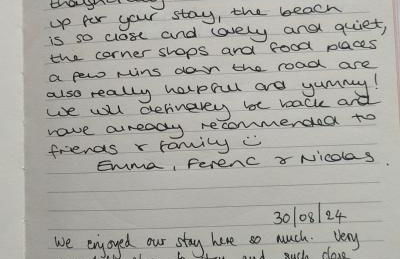 up for your stay, the beach
is so close and lovely and quiet,
the corner shops and food places
a few mins down the road are
also really helpful and yummy!
We will definatley be back and
have already recommended to
friends & family ☺
Emma, Ferenc & Nicolas.
30/08/24
We enjoyed our stay here so much. Very
to stay and such close